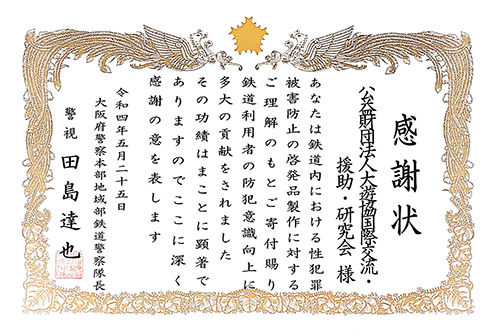 感謝状
公益財団法人大遊協国際交流・
援助・研究会 様
あなたは鉄道内における性犯罪
被害防止の啓発品製作に対する
ご理解のもとご寄付賜り
鉄道利用者の防犯意識向上に
多大の貢献をされました
その功績はまことに顕著で
ありますのでここに深く
感謝の意を表します
令和四年五月二十五日
大阪府警察本部地域部鉄道警察隊長
警視 田島達也